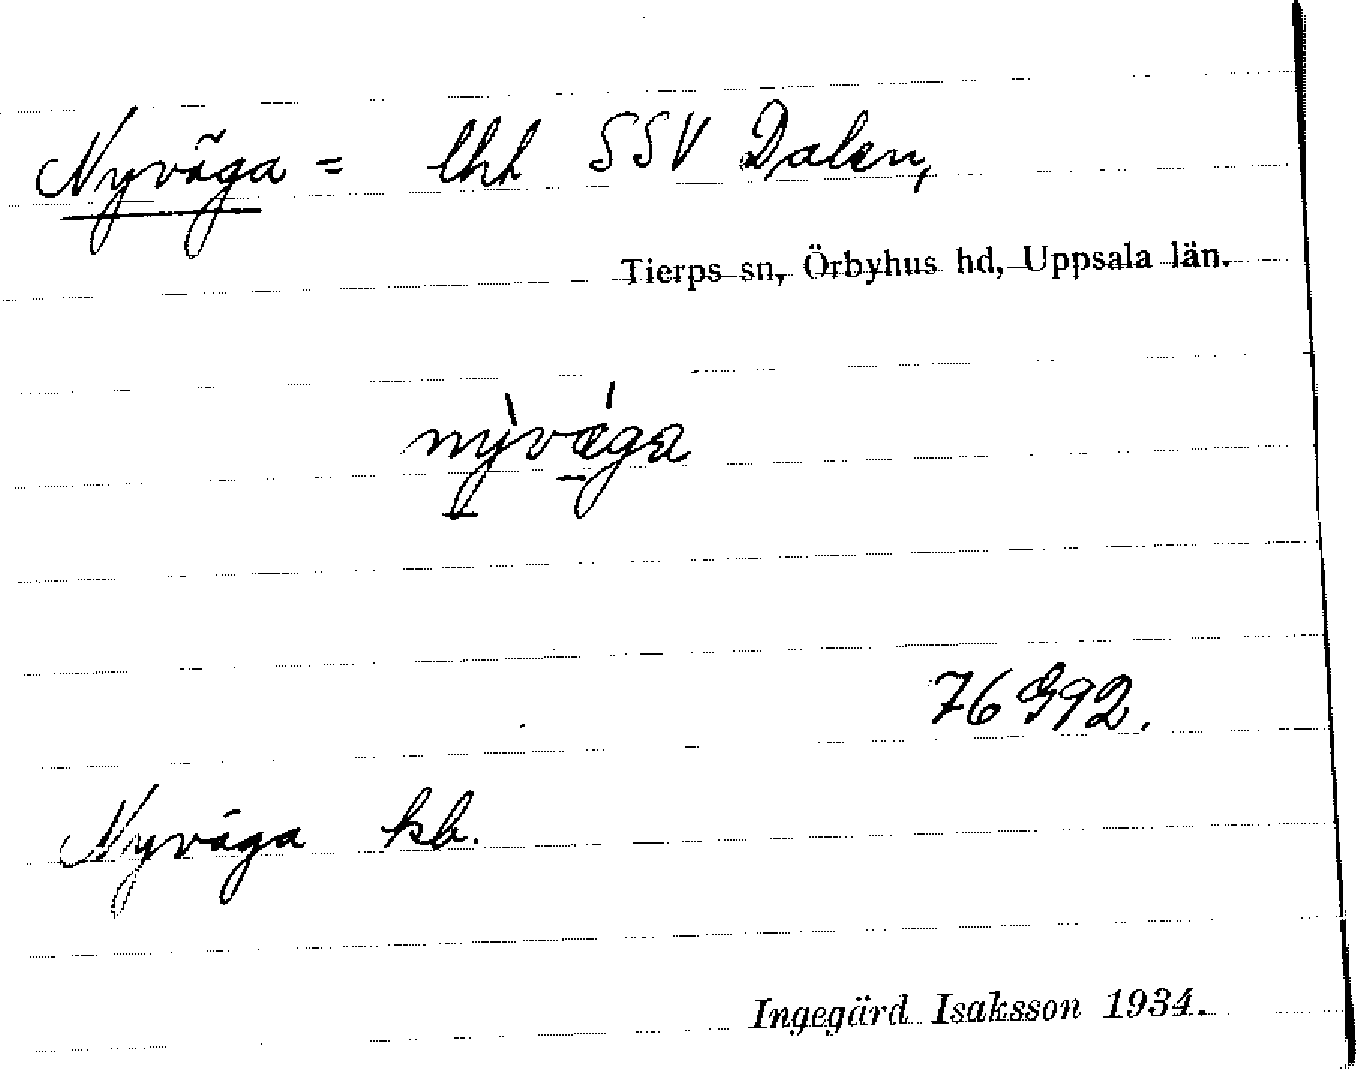 Nyväga = lht SSV Dalen,
Tierps sn, Örbyhus hd, Uppsala län.
nỳvǽga
76 G92.
Nyväga kb.
Ingegärd Isaksson 1934.